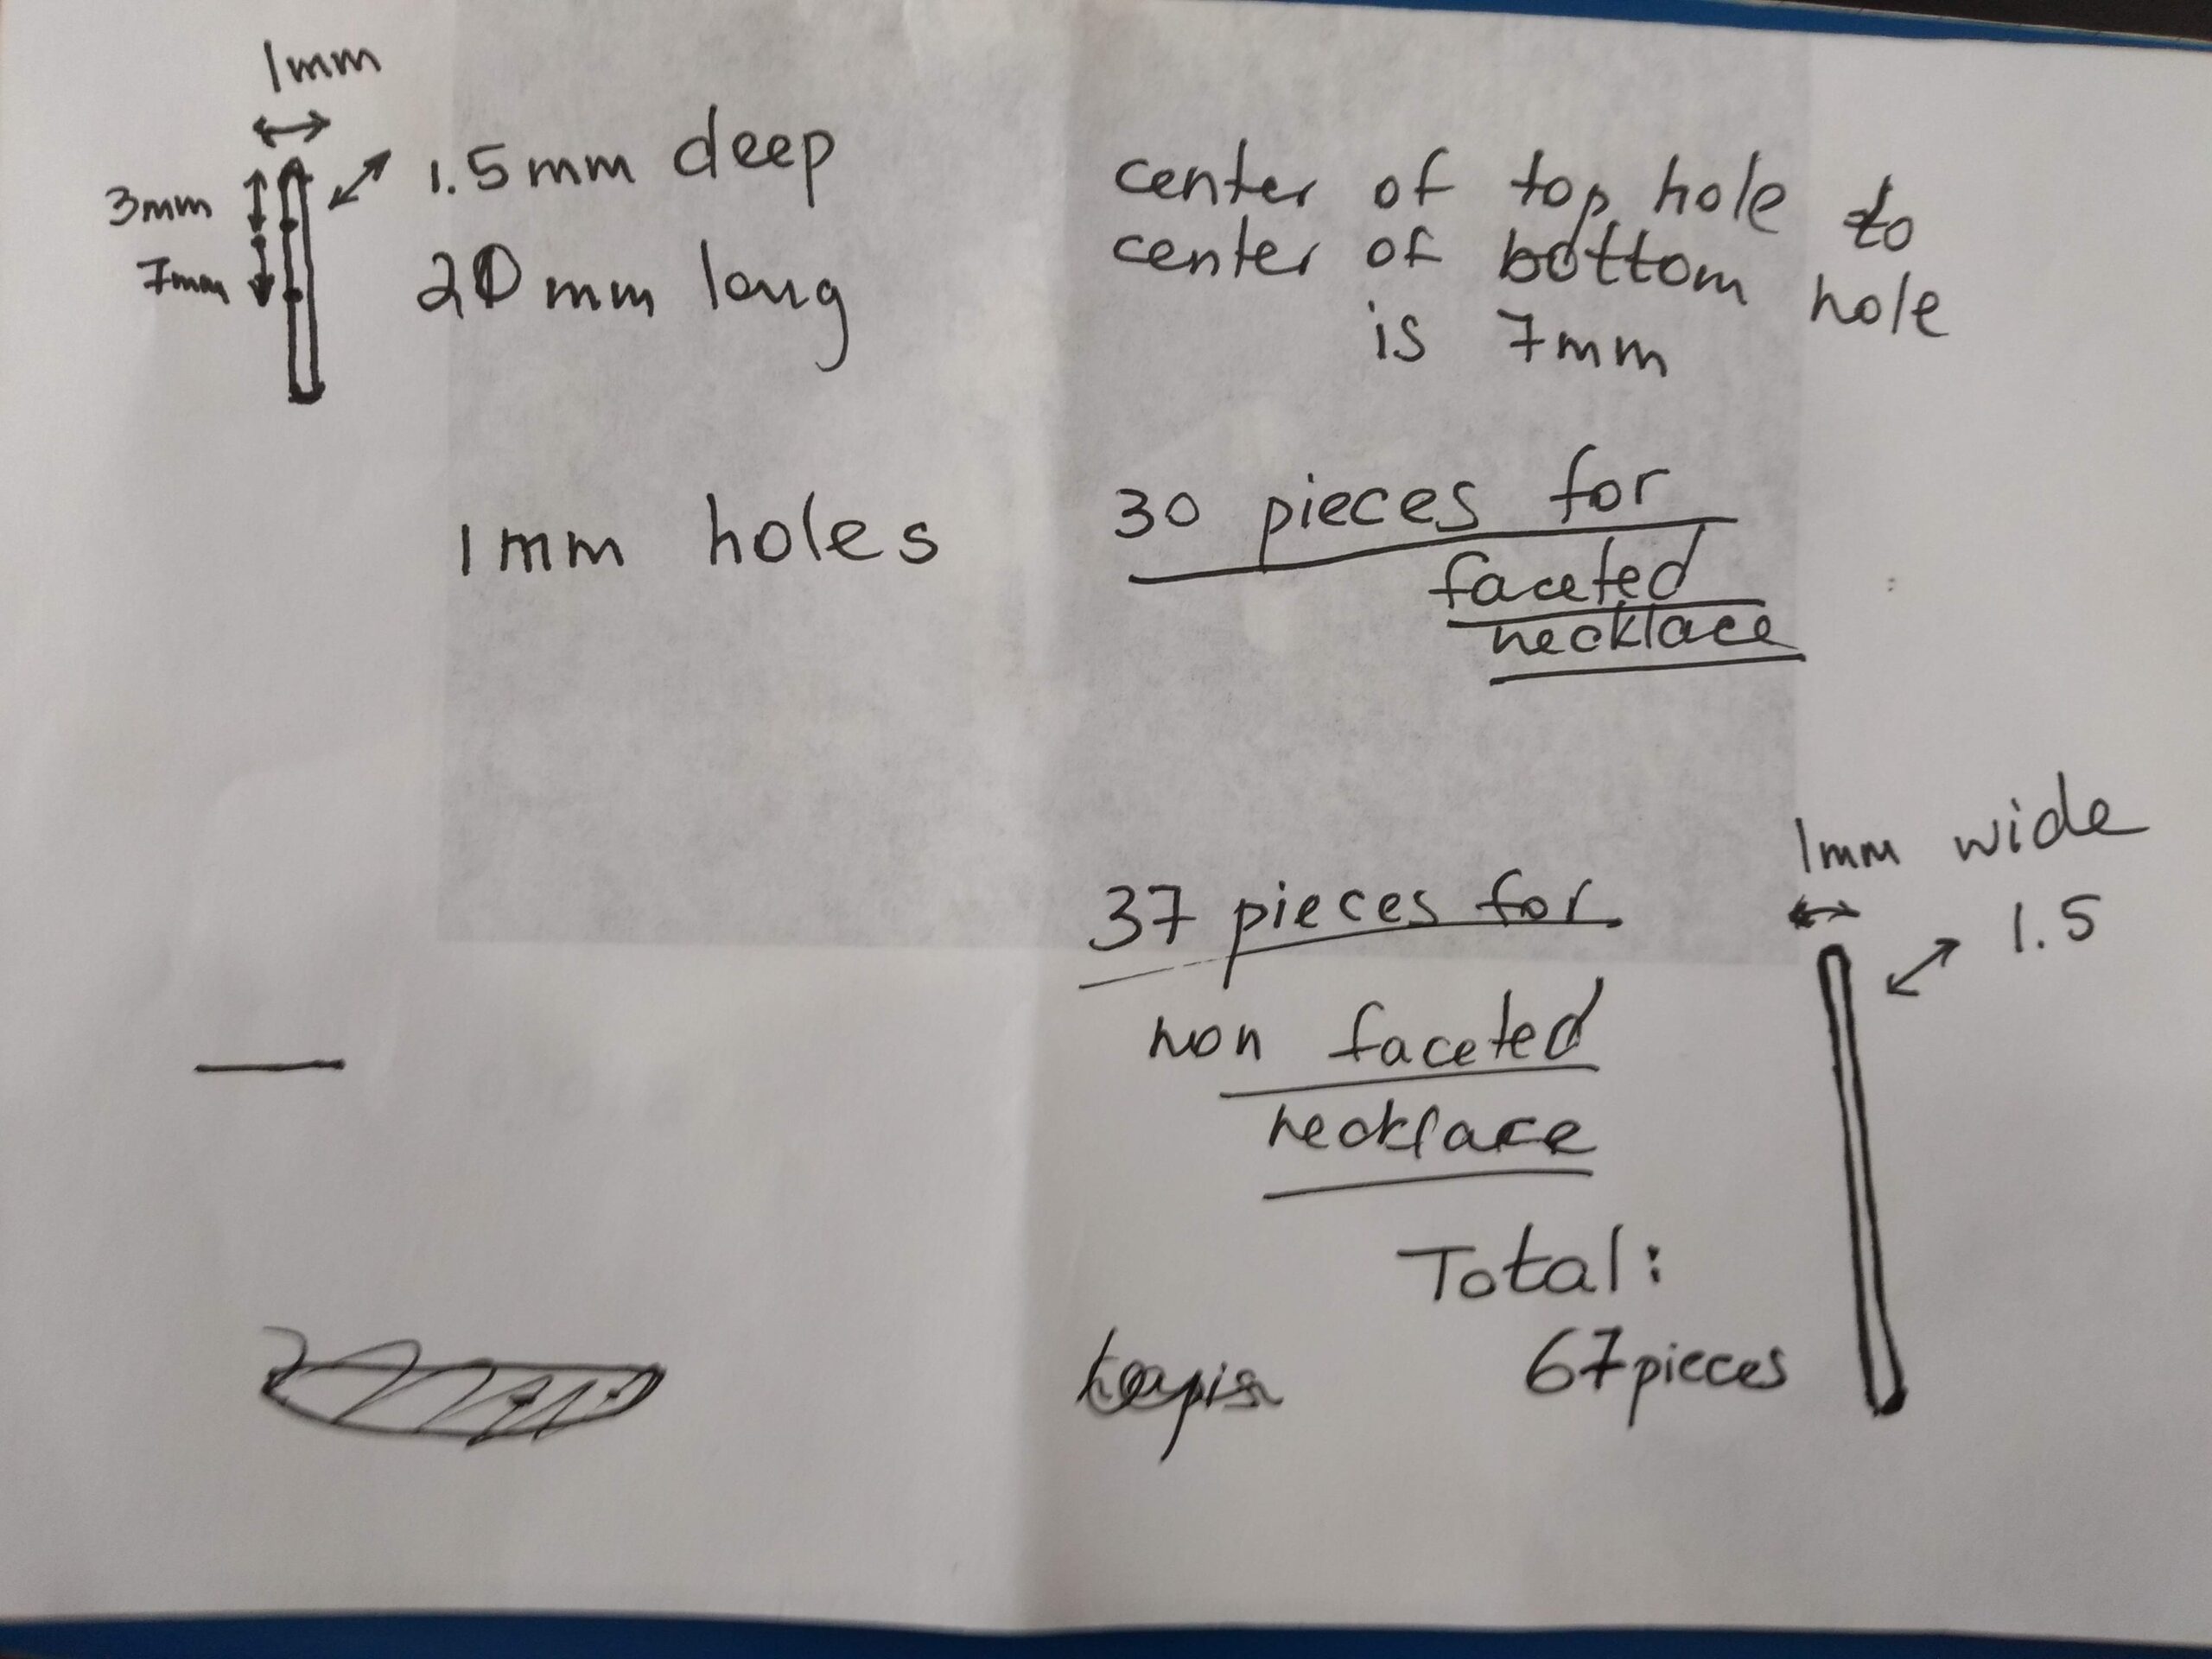 1mm
3mm
1.5mm deep
7mm
20mm long
1mm holes
center of top hole to
center of bottom hole
is 7mm
30 pieces for
faceted
necklace
1mm wide
1.5
37 pieces for
non faceted
necklace
Total:
67pieces